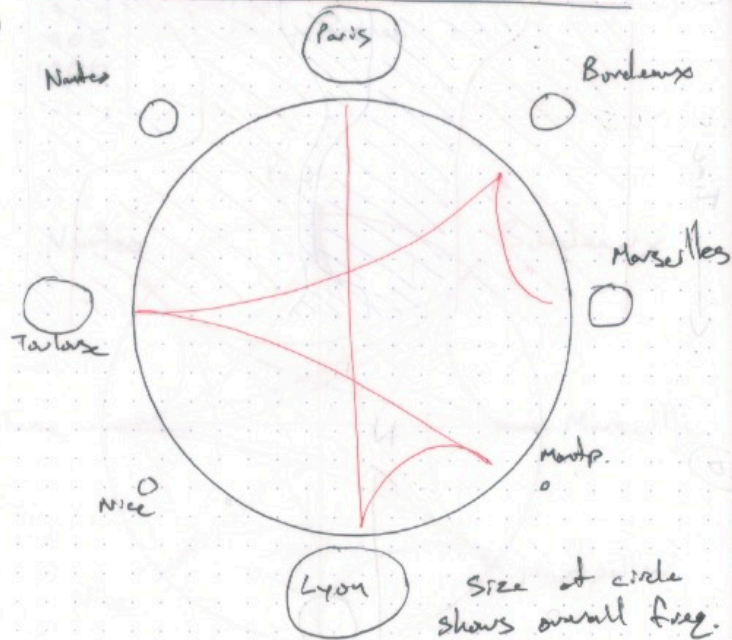 Paris
Nantes
Bordeaux
Marseilles
Toulouse
Montp.
Nice
Lyon
Size of circle
shows overall freq.